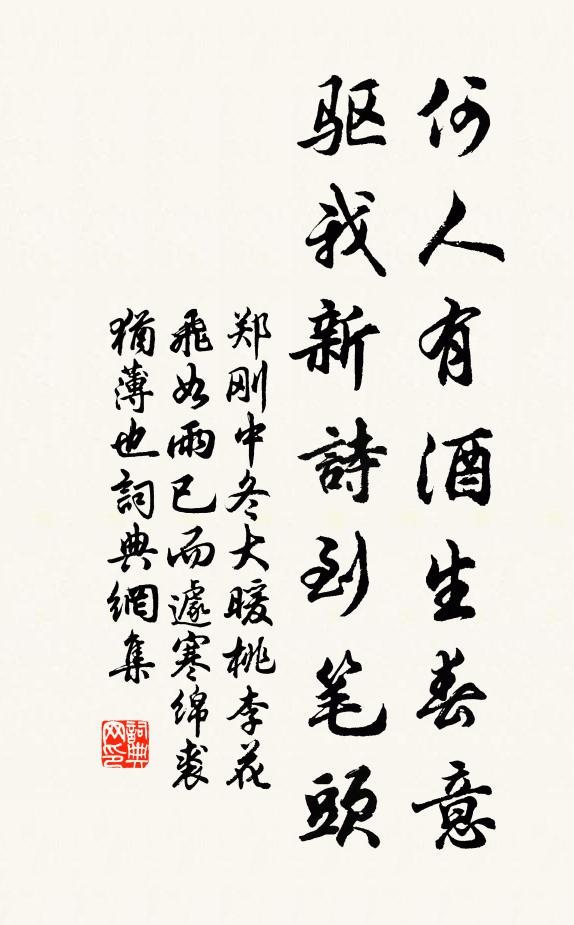 何人有酒生春意
驱我新詩到笔頭
郑刚中冬大暖桃李花
飛如雨已而遽寒绵裘
猶薄也詞典網集
詞典网印